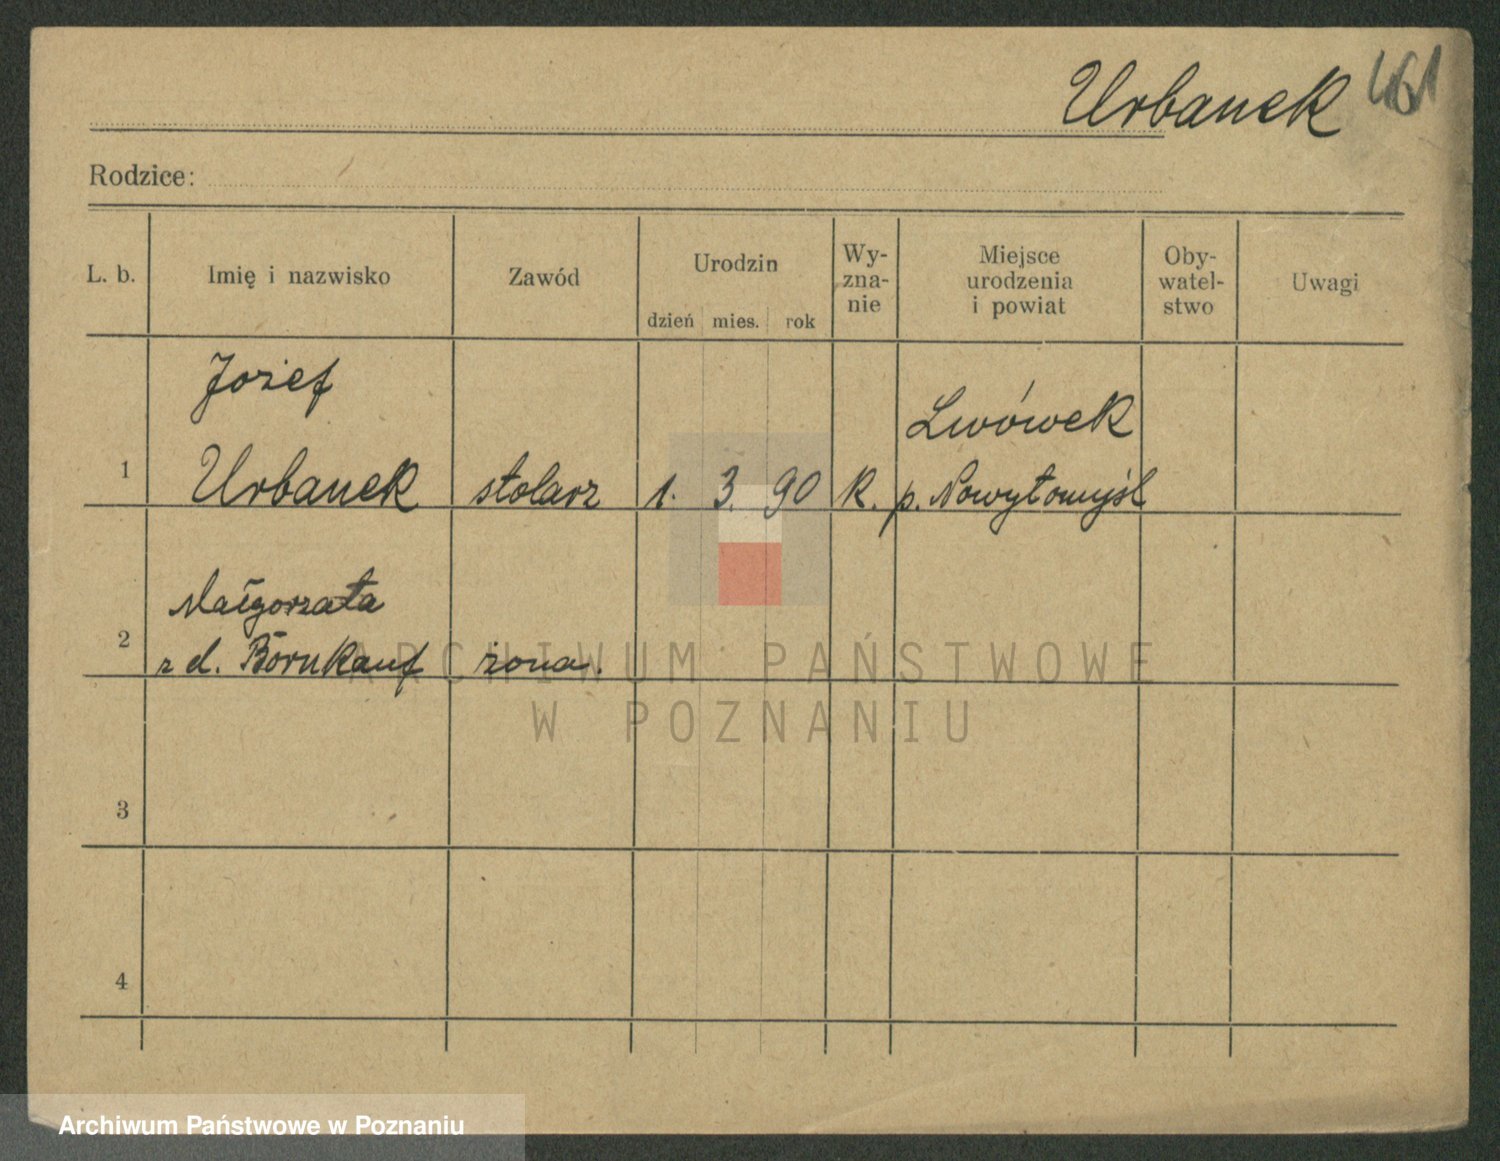 Urbanek 461
Rodzice:
L. b. Imię i nazwisko Zawód Urodzin dzień mies. rok Wy-zna-nie Miejsce urodzenia i powiat Oby-watel-stwo Uwagi
Jozef
Lwówek
1 Urbanek stolarz 1. 3. 90 k. p. Nowytomyśl
Małgorzata
2 z d. Börnkauf żona.
3
4
ARCHIWUM PAŃSTWOWE
W POZNANIU
Archiwum Państwowe w Poznaniu